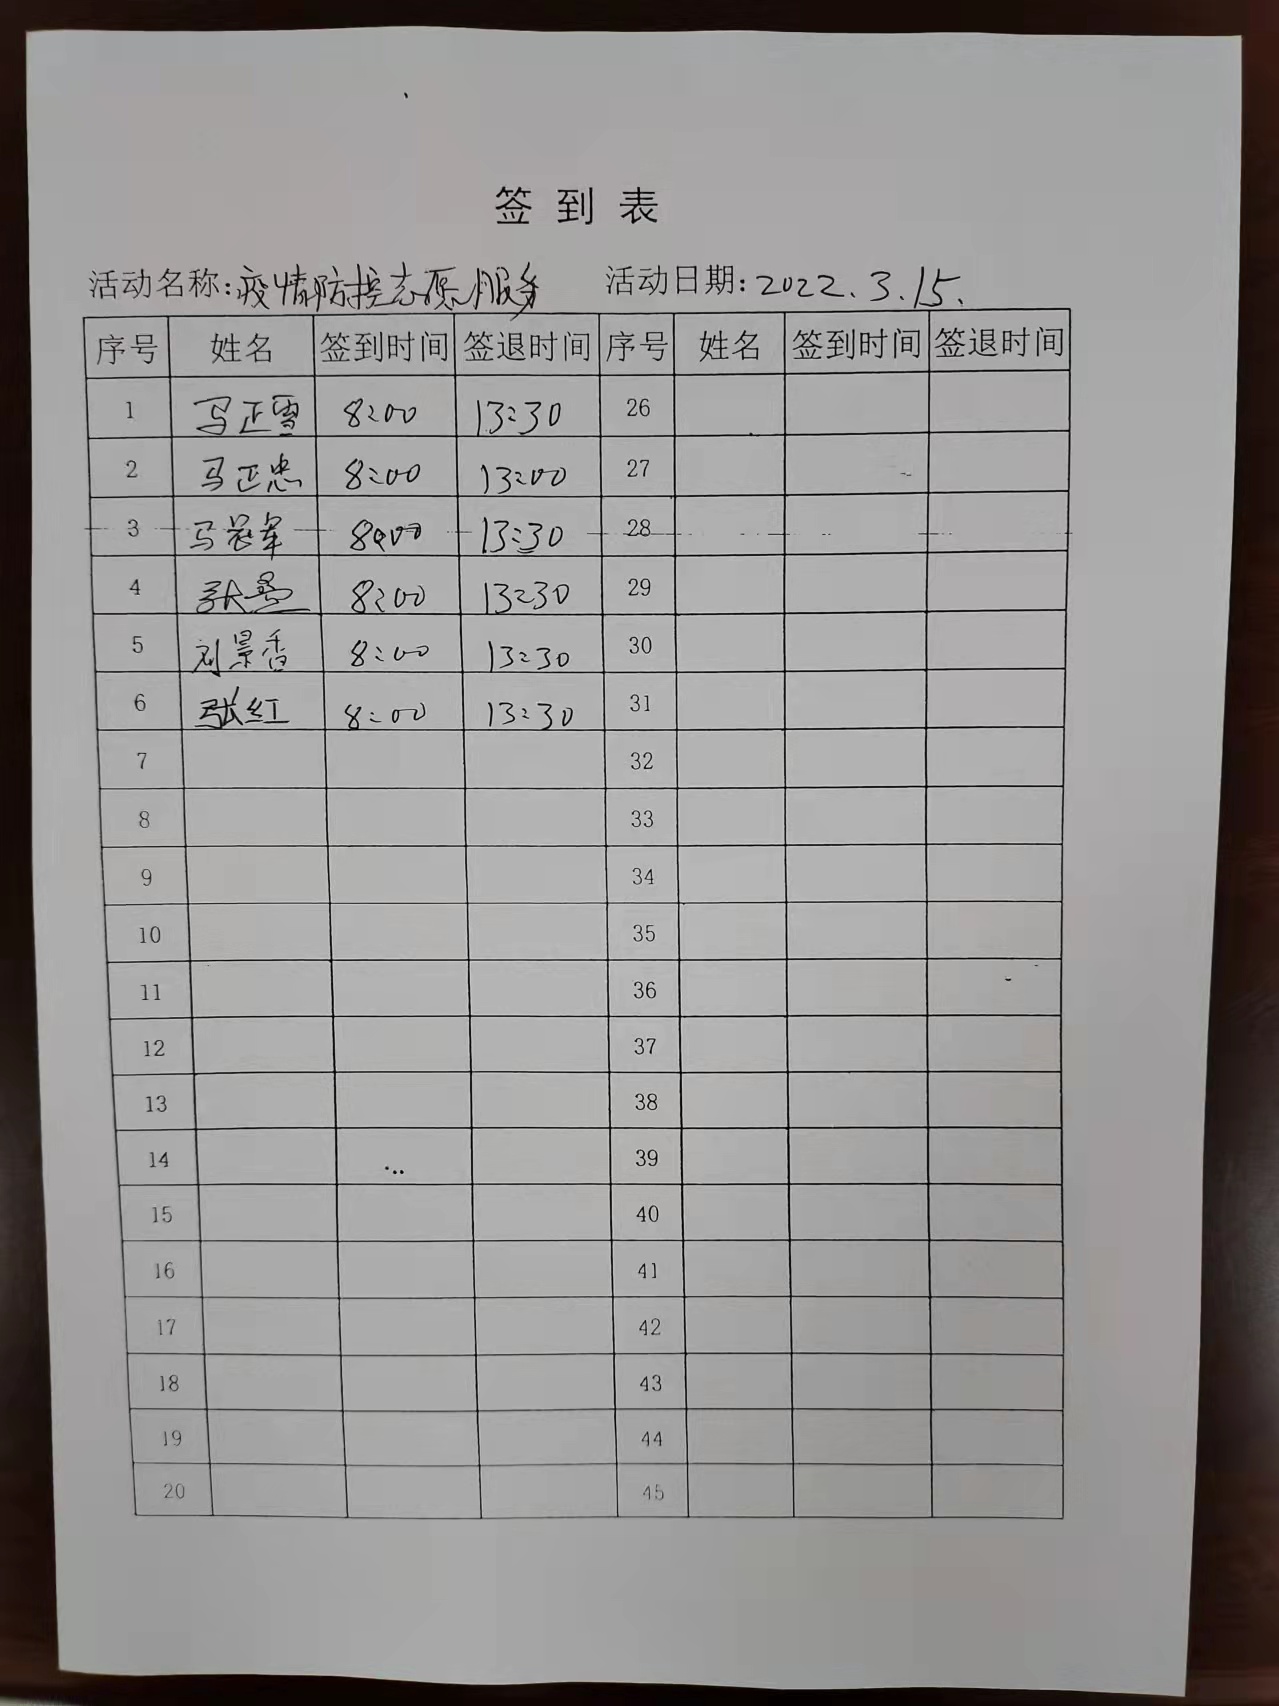 签到表
活动名称:疫情防控志愿服务 活动日期:2022.3.15.
序号 姓名 签到时间 签退时间 序号 姓名 签到时间 签退时间
1 马正雪 8:00 13:30 26
2 马正忠 8:00 13:00 27
3 马 军 8:00 13:30 28
4 张 8:00 13:30 29
5 刘景香 8:00 13:30 30
6 张红 8:00 13:30 31
7 32
8 33
9 34
10 35
11 36
12 37
13 38
14 39
15 40
16 41
17 42
18 43
19 44
20 45